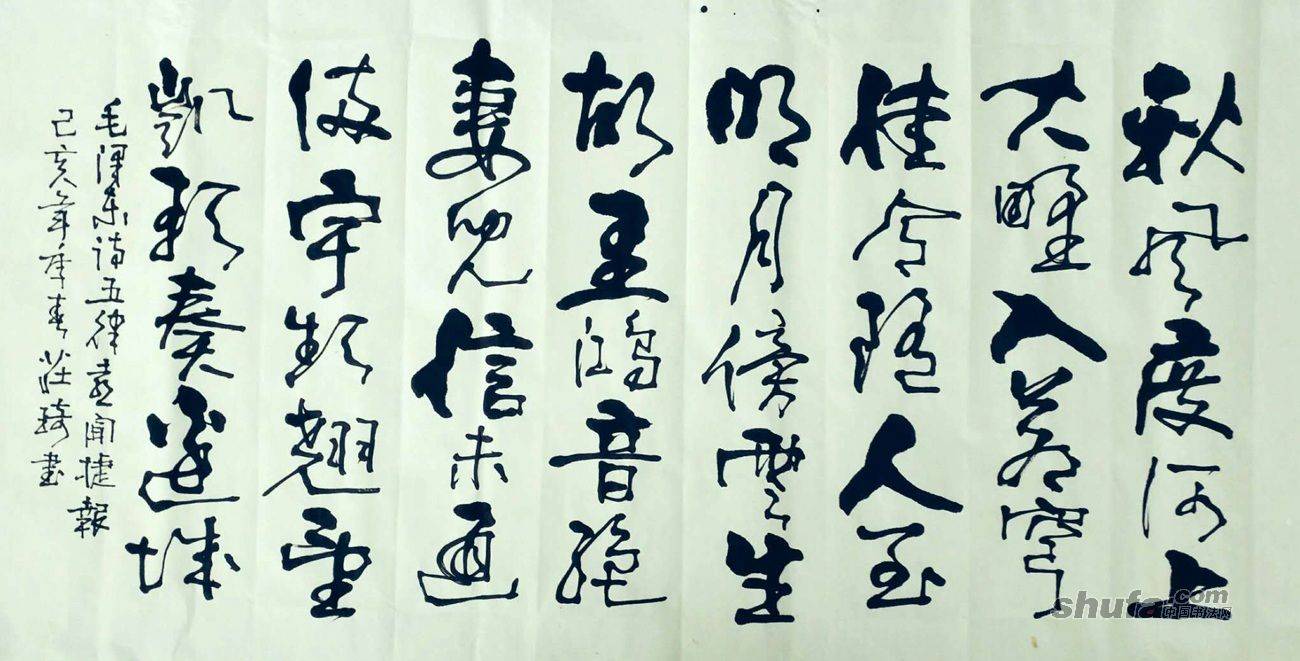 秋风度河上
大野入苍穹
佳令随人至
明月傍雲生
故里鸿音绝
妻儿信未通
满宇频翘望
凱歌奏邊城
毛泽东诗五律喜闻捷報
己亥年季春莊琦書
shufa.com
中国书法网